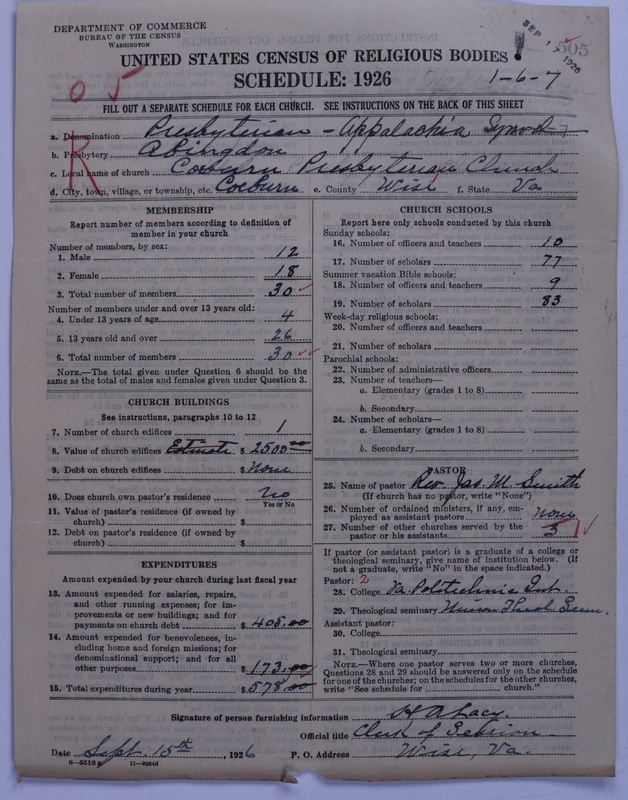 DEPARTMENT OF COMMERCE
BUREAU OF THE CENSUS
WASHINGTON
SEP 17 1926
505
UNITED STATES CENSUS OF RELIGIOUS BODIES
SCHEDULE: 1926
1-6-7
FILL OUT A SEPARATE SCHEDULE FOR EACH CHURCH. SEE INSTRUCTIONS ON THE BACK OF THIS SHEET
R
a. Denomination Presbyterian - Appalachia Synod
b. Presbytery Abingdon
c. Local name of church Coeburn Presbyterian Church
d. City, town, village, or township, etc. Coeburn e. County Wise f. State Va
MEMBERSHIP
Report number of members according to definition of member in your church
Number of members, by sex:
1. Male 12
2. Female 18
3. Total number of members 30
Number of members under and over 13 years old:
4. Under 13 years of age 4
5. 13 years old and over 26
6. Total number of members 30
NOTE.—The total given under Question 6 should be the same as the total of males and females given under Question 3.
CHURCH BUILDINGS
See instructions, paragraphs 10 to 12
7. Number of church edifices 1
8. Value of church edifices Estimate $ 2500.00
9. Debt on church edifices $ None
10. Does church own pastor's residence No
Yes or No
11. Value of pastor's residence (if owned by church) $
12. Debt on pastor's residence (if owned by church) $
EXPENDITURES
Amount expended by your church during last fiscal year
13. Amount expended for salaries, repairs, and other running expenses; for improvements or new buildings; and for payments on church debt $ 405.00
14. Amount expended for benevolences, including home and foreign missions; for denominational support; and for all other purposes $ 173.00
15. Total expenditures during year $ 578.00
CHURCH SCHOOLS
Report here only schools conducted by this church
Sunday schools:
16. Number of officers and teachers 10
17. Number of scholars 77
Summer vacation Bible schools:
18. Number of officers and teachers 9
19. Number of scholars 83
Week-day religious schools:
20. Number of officers and teachers
21. Number of scholars
Parochial schools:
22. Number of administrative officers
23. Number of teachers—
a. Elementary (grades 1 to 8)
b. Secondary
24. Number of scholars—
a. Elementary (grades 1 to 8)
b. Secondary
PASTOR
25. Name of pastor Rev. Jas. M. Smith
(If church has no pastor, write "None")
26. Number of ordained ministers, if any, employed as assistant pastors None
27. Number of other churches served by the pastor or his assistants 3 1
If pastor (or assistant pastor) is a graduate of a college or theological seminary, give name of institution below. (If not a graduate, write "No" in the space indicated.)
Pastor: 2
28. College Va Politechnic Inst.
29. Theological seminary Union Theol Sem
Assistant pastor:
30. College
31. Theological seminary
NOTE.—Where one pastor serves two or more churches, Questions 28 and 29 should be answered only on the schedule for one of the churches; on the schedules for the other churches, write "See schedule for church."
Signature of person furnishing information H A Lacy
Official title Clerk of Session
Date Sept. 15th, 1926 P. O. Address Wise, Va.